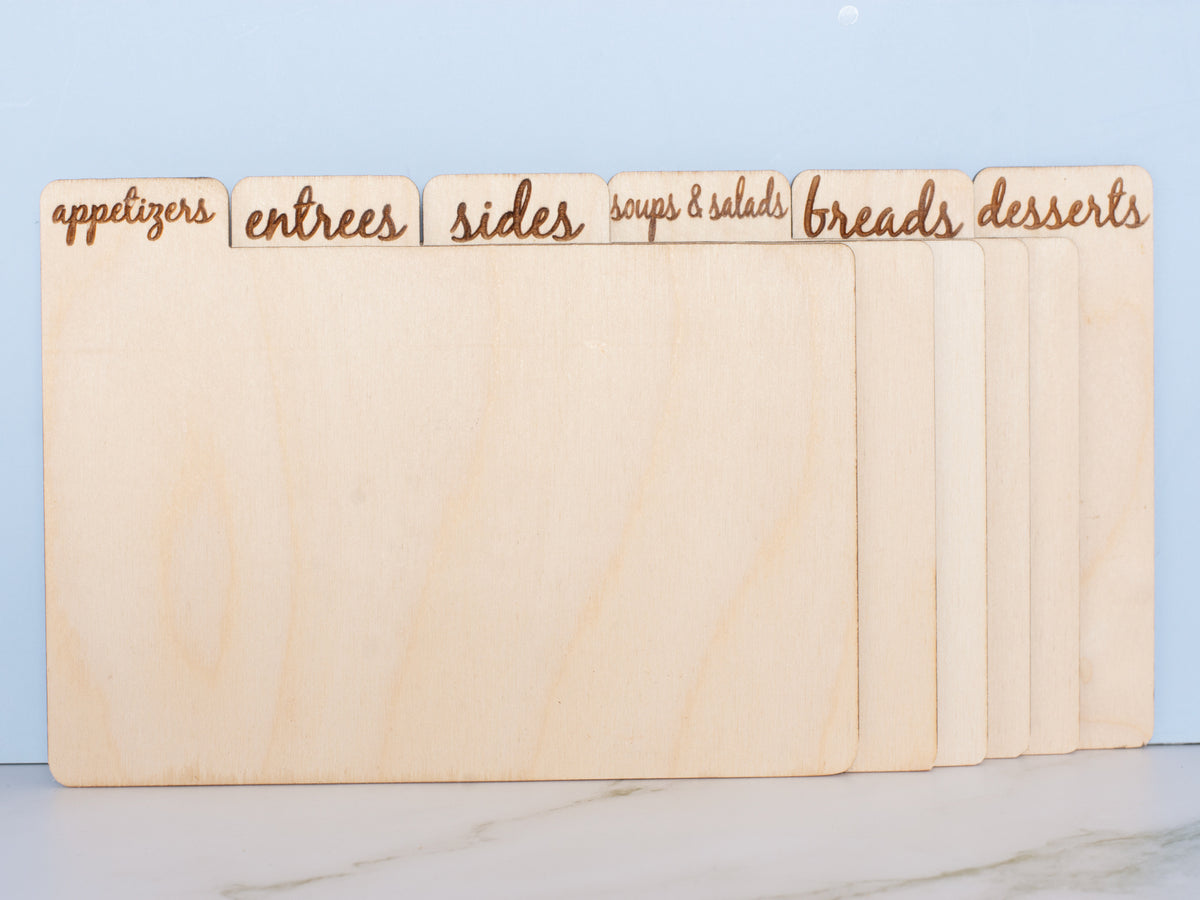 appetizers
entrees
sides
soups & salads
breads
desserts